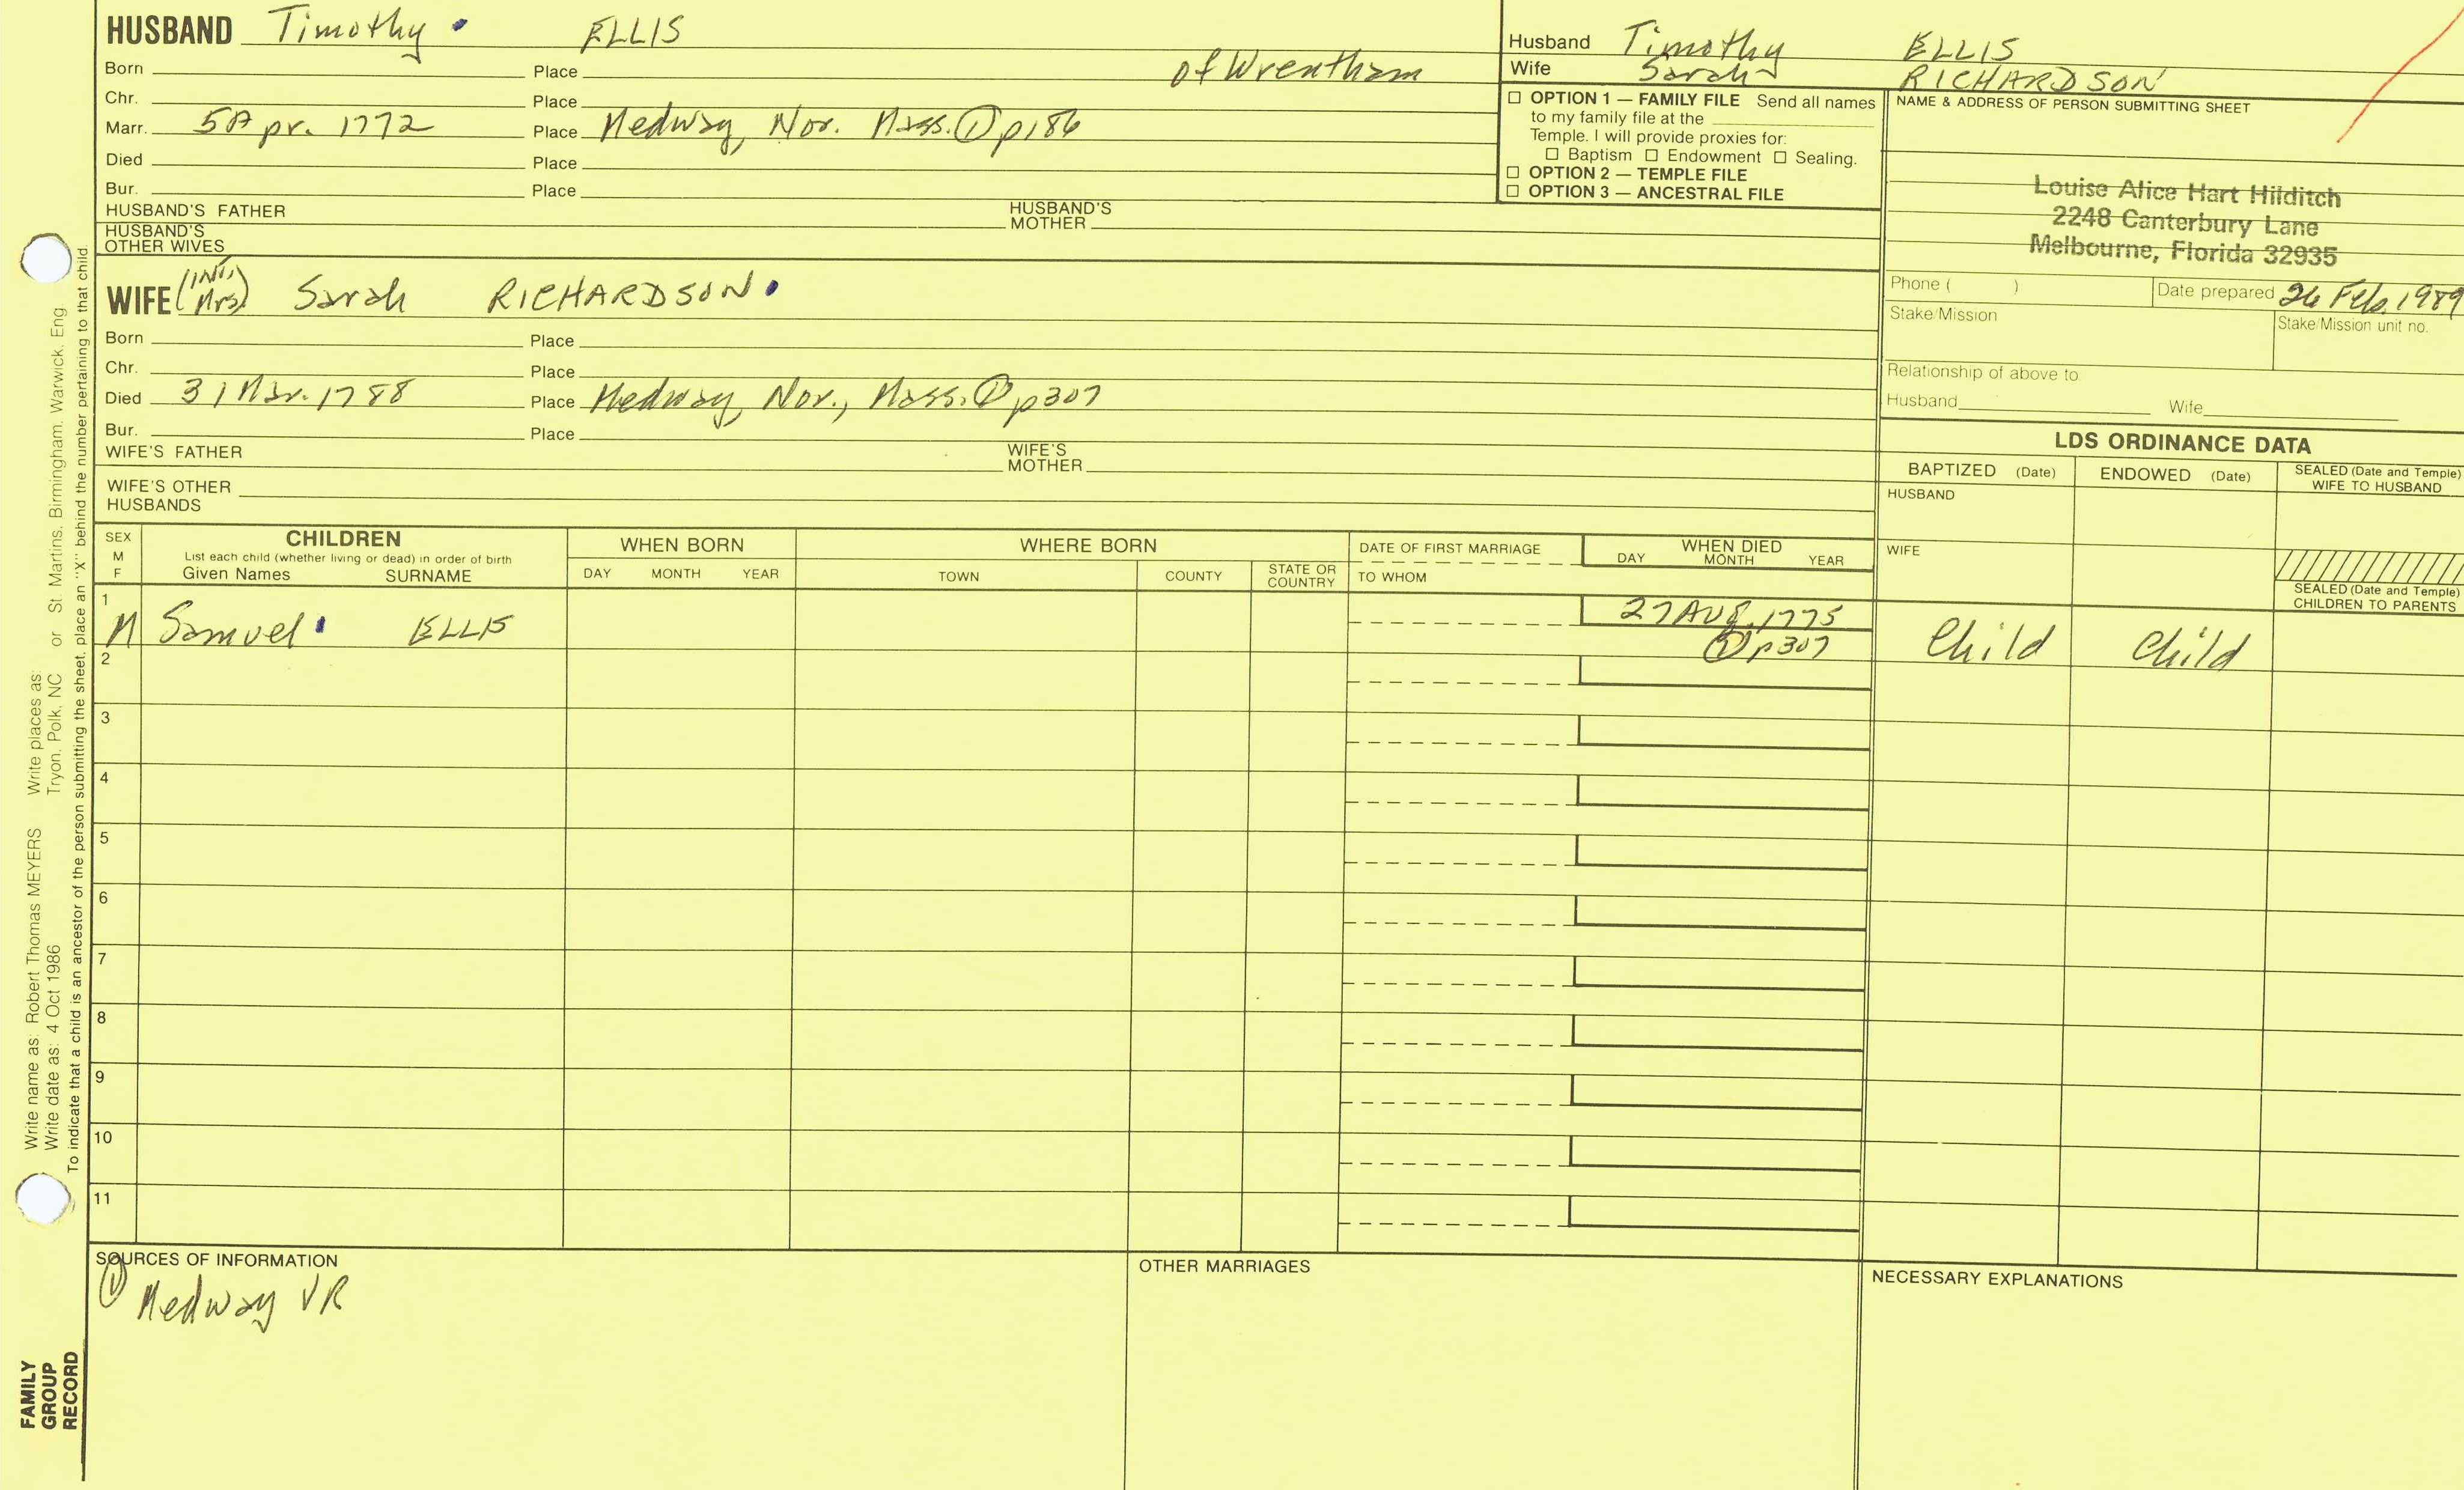 HUSBAND Timothy ELLIS
Born Place of Wrentham
Chr. Place
Marr. 5 Apr. 1772 Place Medway, Nor. Mass. ① p186
Died Place
Bur. Place
HUSBAND'S FATHER HUSBAND'S MOTHER
HUSBAND'S OTHER WIVES
WIFE (INT,) (Mrs) Sarah RICHARDSON
Born Place
Chr. Place
Died 31 Mar. 1788 Place Medway, Nor., Mass. ① p307
Bur. Place
WIFE'S FATHER WIFE'S MOTHER
WIFE'S OTHER HUSBANDS
Husband Timothy ELLIS
Wife Sarah RICHARDSON
☐ OPTION 1 — FAMILY FILE Send all names
to my family file at the
Temple. I will provide proxies for:
☐ Baptism ☐ Endowment ☐ Sealing.
☐ OPTION 2 — TEMPLE FILE
☐ OPTION 3 — ANCESTRAL FILE
NAME & ADDRESS OF PERSON SUBMITTING SHEET
Louise Alice Hart Hilditch
2248 Canterbury Lane
Melbourne, Florida 32935
Phone ( ) Date prepared 26 Feb. 1989
Stake/Mission Stake/Mission unit no.
Relationship of above to
Husband Wife
LDS ORDINANCE DATA
BAPTIZED (Date) ENDOWED (Date) SEALED (Date and Temple) WIFE TO HUSBAND
HUSBAND
WIFE
SEALED (Date and Temple) CHILDREN TO PARENTS
SEX M F
CHILDREN
List each child (whether living or dead) in order of birth
Given Names SURNAME
WHEN BORN
DAY MONTH YEAR
WHERE BORN
TOWN COUNTY STATE OR COUNTRY
DATE OF FIRST MARRIAGE
TO WHOM
WHEN DIED
DAY MONTH YEAR
1 M Samuel ELLIS 27 AUG. 1775
① p307 Child Child
2
3
4
5
6
7
8
9
10
11
SOURCES OF INFORMATION
① Medway VR
OTHER MARRIAGES
NECESSARY EXPLANATIONS
Write name as: Robert Thomas MEYERS Write places as:
Write date as: 4 Oct 1986 Tryon, Polk, NC or St Martins, Birmingham, Warwick, Eng
To indicate that a child is an ancestor of the person submitting the sheet, place an "X" behind the number pertaining to that child.
FAMILY
GROUP
RECORD